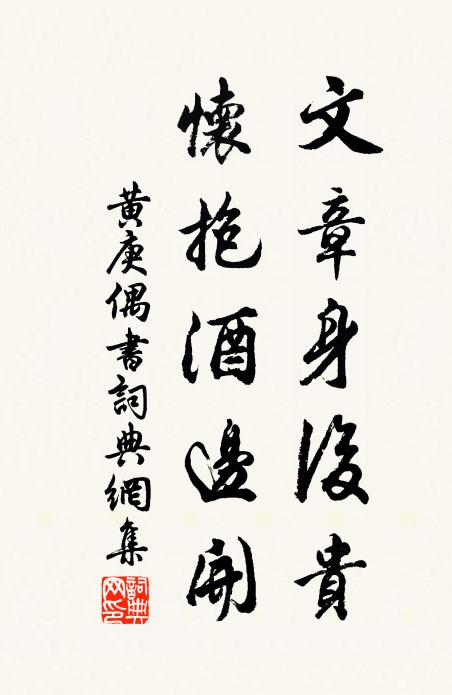 文章身後貴
懷抱酒邊開
黄庚偶書詞典網集
詞典網印